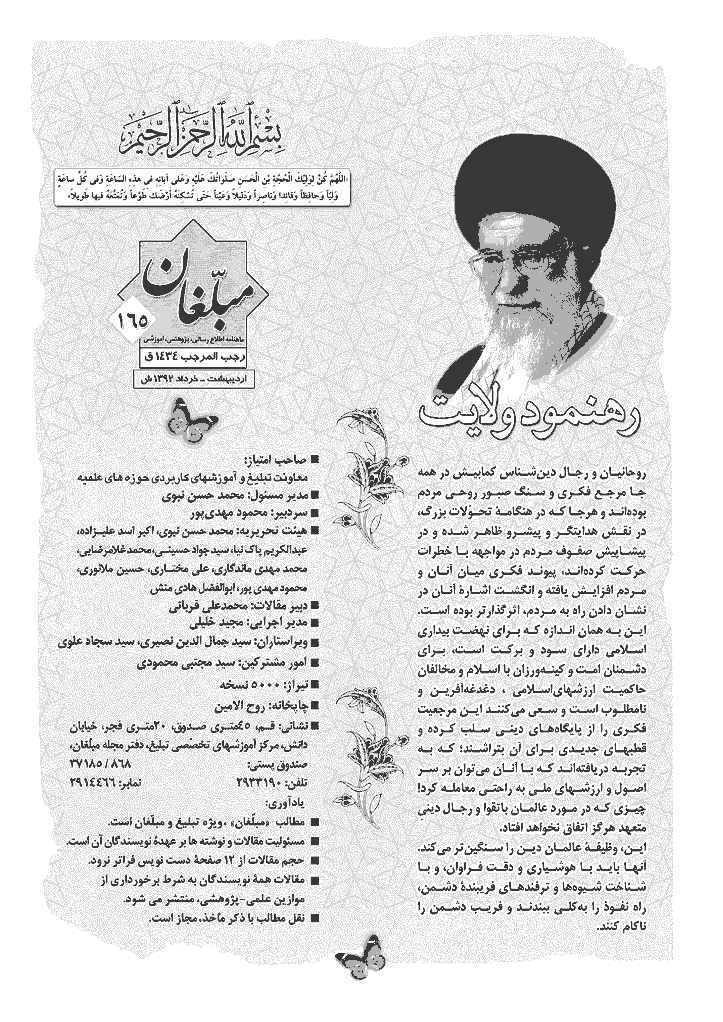 بِسْمِ اللَّهِ الرَّحْمَنِ الرَّحِيمِ
«اللَّهُمَّ كُنْ لِوَلِيِّكَ الْحُجَّةِ بْنِ الْحَسَنِ صَلَوَاتُكَ عَلَيْهِ وَعَلَى آبَائِهِ فِي هَذِهِ السَّاعَةِ وَفِي كُلِّ سَاعَةٍ
وَلِيّاً وَحَافِظاً وَقَائِدا وَنَاصِراً وَدَلِيلاً وَعَيْناً حَتَّى تُسْكِنَهُ أَرْضَكَ طَوْعاً وَتُمَتِّعَهُ فِيهَا طَوِيلاً»
مبلّغان
۱۶۵
ماهنامه اطلاع رسانی، پژوهشی، آموزشی
رجب المرجب ۱۴۳۴ ق
اردیبهشت ـ خرداد ۱۳۹۲ ش
رهنمود ولایت
روحانیان و رجال دین‌شناس کمابیش در همه
جا مرجع فکری و سنگ صبور روحی مردم
بوده‌اند و هرجا که در هنگامهٔ تحوّلات بزرگ،
در نقش هدایتگر و پیشرو ظاهر شده و در
پیشاپیش صفوف مردم در مواجهه با خطرات
حرکت کرده‌اند، پیوند فکری میان آنان و
مردم افزایش یافته و انگشت اشارهٔ آنان در
نشان دادن راه به مردم، اثرگذارتر بوده است.
این به همان اندازه که برای نهضت بیداری
اسلامی دارای سود و برکت است، برای
دشمنان امت و کینه‌ورزان با اسلام و مخالفان
حاکمیت ارزشهای‌اسلامی ، دغدغه‌آفرین و
نامطلوب است و سعی می‌کنند این مرجعیت
فکری را از پایگاه‌های دینی سلب کرده و
قطبهای جدیدی برای آن بتراشند؛ که به
تجربه دریافته‌اند که با آنان می‌توان بر سر
اصول و ارزشهای ملی به راحتی معامله کرد!
چیزی که در مورد عالمان باتقوا و رجال دینی
متعهد هرگز اتفاق نخواهد افتاد.
این، وظیفهٔ عالمان دین را سنگین‌تر می‌کند.
آنها باید با هوشیاری و دقت فراوان، و با
شناخت شیوه‌ها و ترفندهای فریبندهٔ دشمن،
راه نفوذ را به‌کلی ببندند و فریب دشمن را
ناکام کنند.
■ صاحب امتیاز:
معاونت تبلیغ و آموزشهای کاربردی حوزه های علمیه
■ مدیر مسئول: محمد حسن نبوی
■ سردبیر: محمود مهدی‌پور
■ هیئت تحریریه: محمد حسن نبوی، اکبر اسد علیزاده،
عبدالکریم پاک نیا، سید جواد حسینی، محمدغلامرضایی،
محمد مهدی ماندگاری، علی مختاری، حسین ملانوری،
محمود مهدی پور، ابوالفضل هادی منش
■ دبیر مقالات: محمدعلی قربانی
■ مدیر اجرایی: مجید خلیلی
■ ویراستاران: سید جمال الدین نصیری، سید سجاد علوی
■ امور مشترکین: سید مجتبی محمودی
■ تیراژ: ۵۰۰۰ نسخه
■ چاپخانه: روح الامین
■ نشانی: قم، ۴۵متری صدوق، ۲۰متری فجر، خیابان
دانش، مرکز آموزشهای تخصّصی تبلیغ، دفتر مجله مبلّغان،
صندوق پستی: ۸۶۸ / ۳۷۱۸۵
تلفن: ۲۹۳۳۱۹۰ نمابر: ۲۹۱۴۴۶۶
یادآوری:
■ مطالب «مبلّغان» ، ویژه تبلیغ و مبلّغان است.
■ مسئولیت مقالات و نوشته ها بر عهدهٔ نویسندگان آن است.
■ حجم مقالات از ۱۲ صفحهٔ دست نویس فراتر نرود.
■ مقالات همهٔ نویسندگان به شرط برخورداری از
موازین علمی-پژوهشی، منتشر می شود.
■ نقل مطالب با ذکر مأخذ، مجاز است.